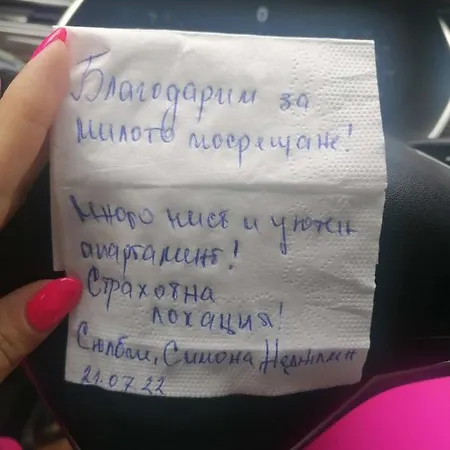 Благодарим за
милото посрещане!
Много чист и уютен
апартамент!
Страхотна
локация!
Симона
21.07.22